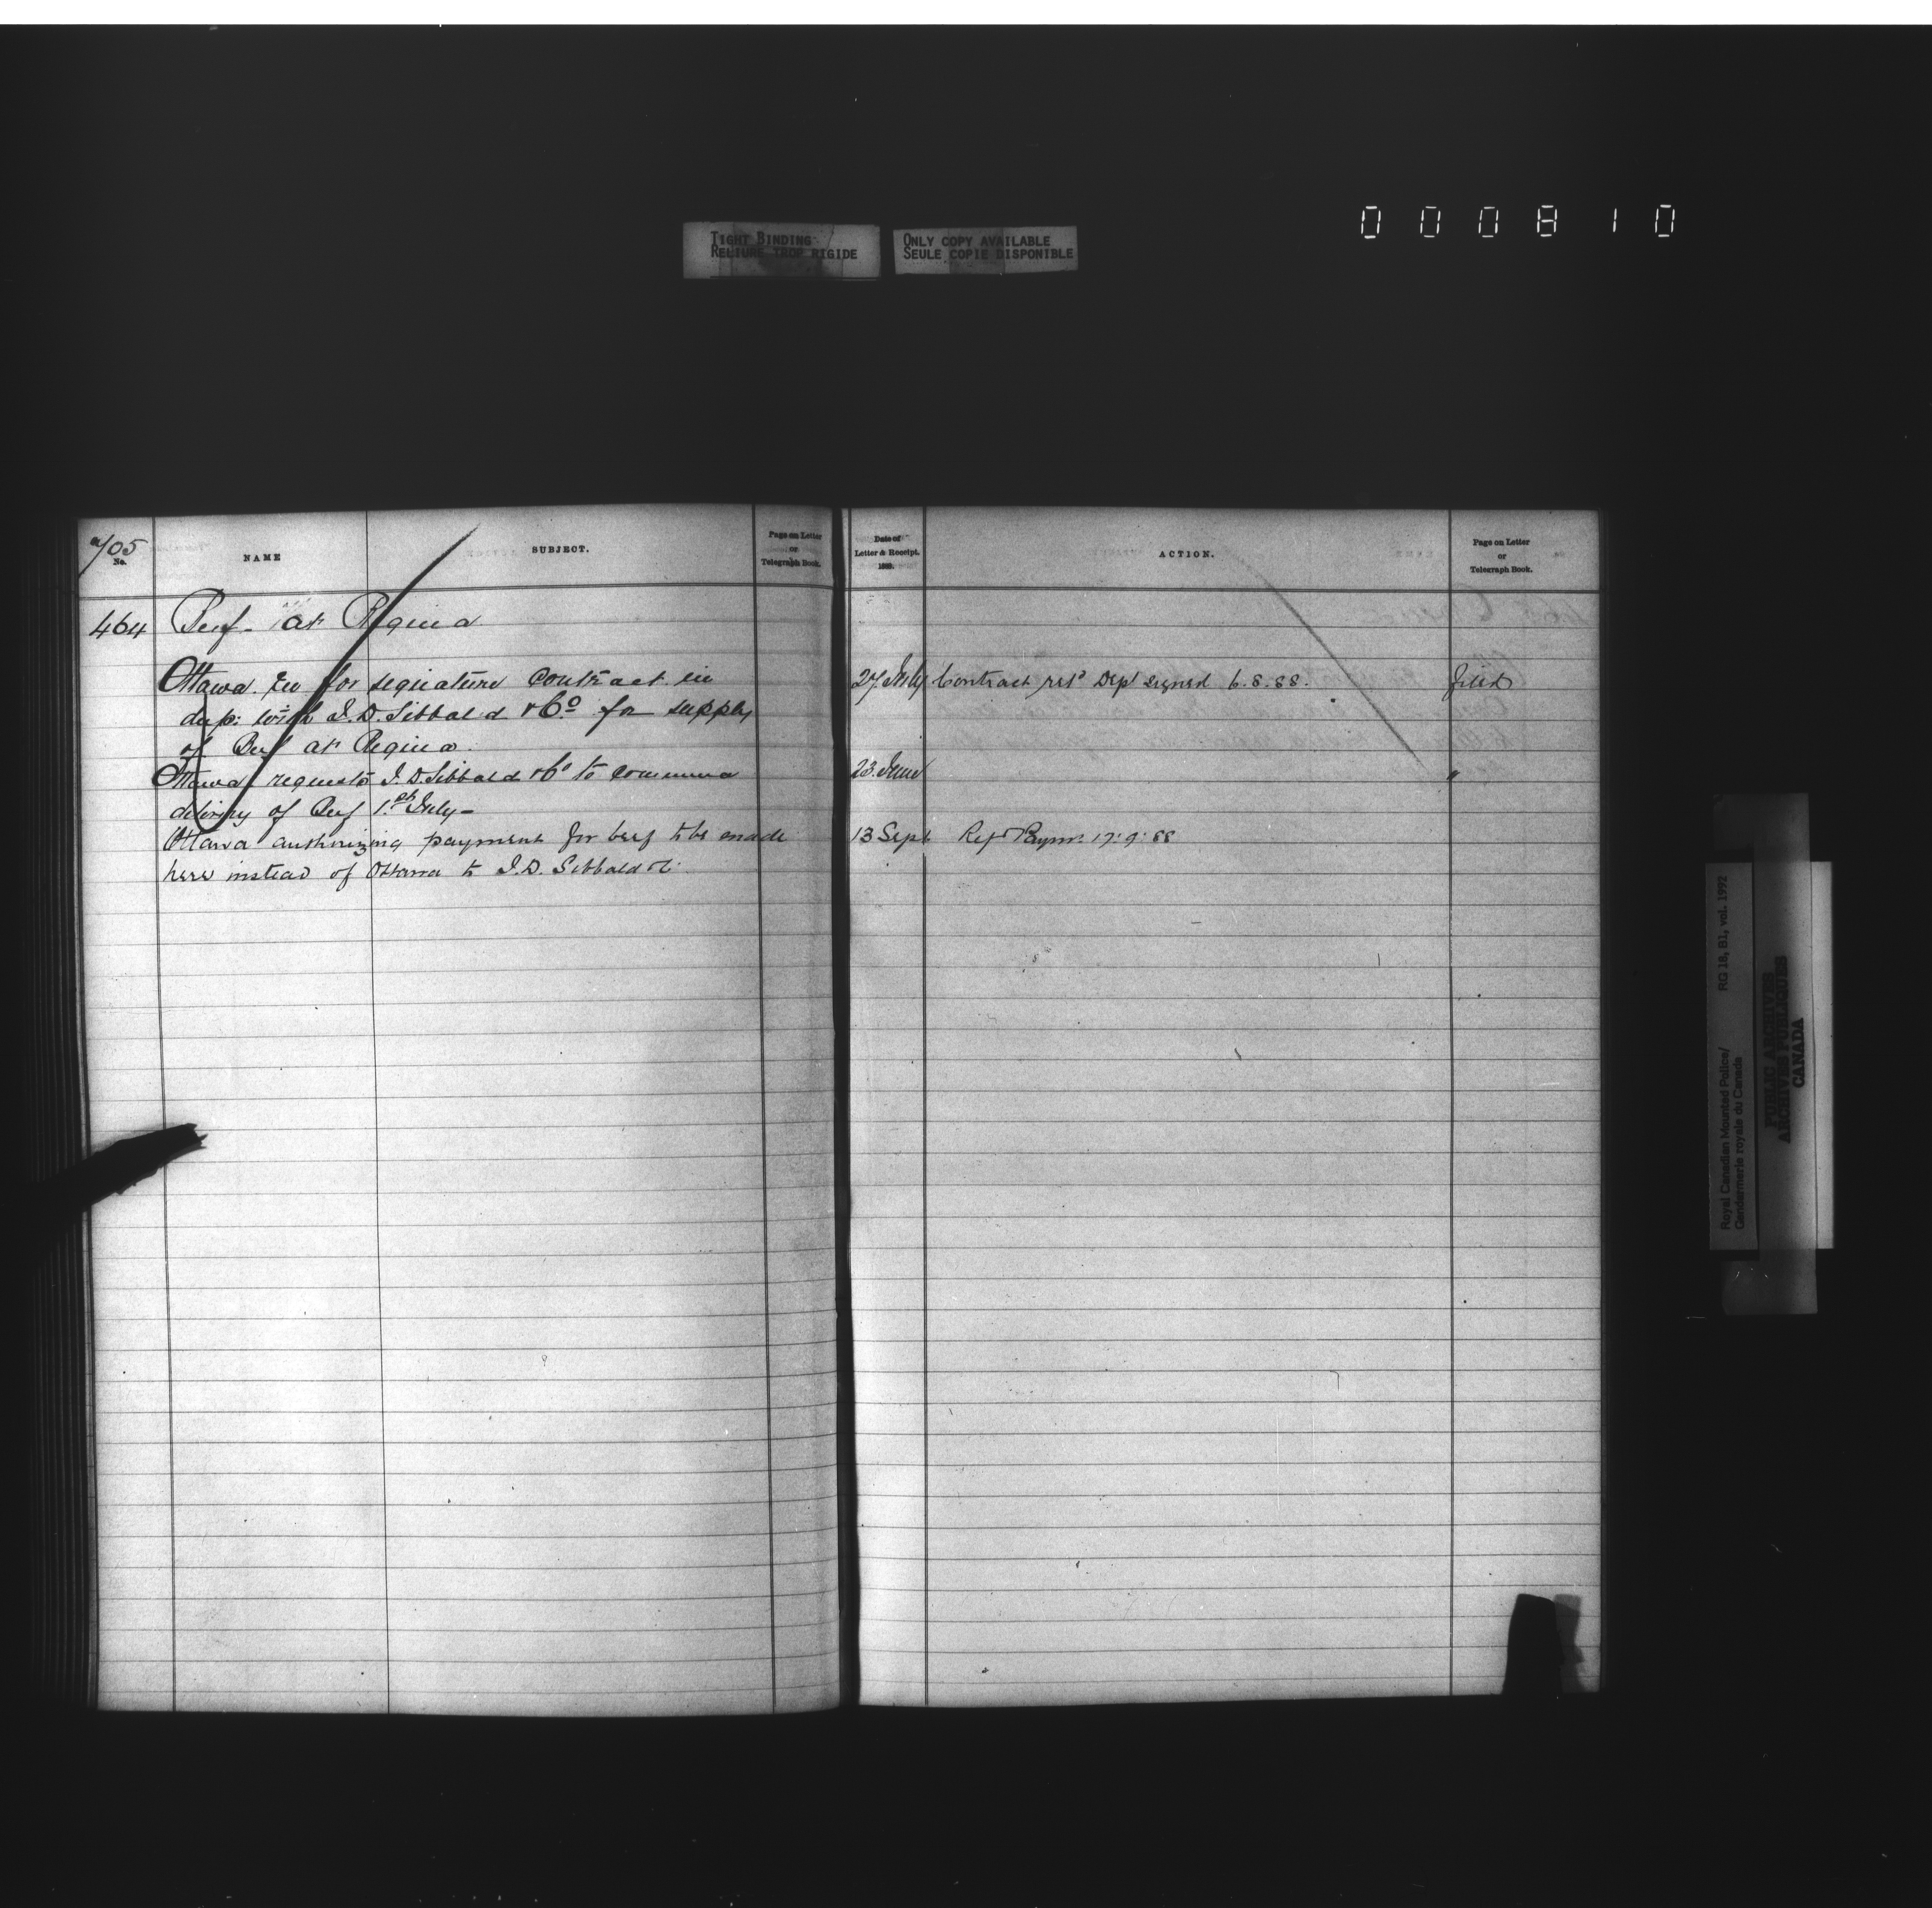 000810
TIGHT BINDING
RELIURE TROP RIGIDE
ONLY COPY AVAILABLE
SEULE COPIE DISPONIBLE
705
No.
NAME
SUBJECT.
Page on Letter
or
Telegraph Book.
464 Beef - at Regina
Ottawa for signature contract in
dup: with I.D. Sibbald & Co for supply
of Beef at Regina.
Ottawa requests I.D. Sibbald & Co to commence
delivery of Beef 1st July -
Ottawa authorizing payment for beef to be made
here instead of Ottawa to I.D. Sibbald &
Date of
Letter & Receipt.
188 .
ACTION.
Page on Letter
or
Telegraph Book.
27 July Contract retd Dept signed 6.8.88. filed
23. June "
13 Sept Refd Paymr. 17.9.88
Royal Canadian Mounted Police/ RG 18, B1, vol. 1992
Gendarmerie royale du Canada
PUBLIC ARCHIVES
ARCHIVES PUBLIQUES
CANADA